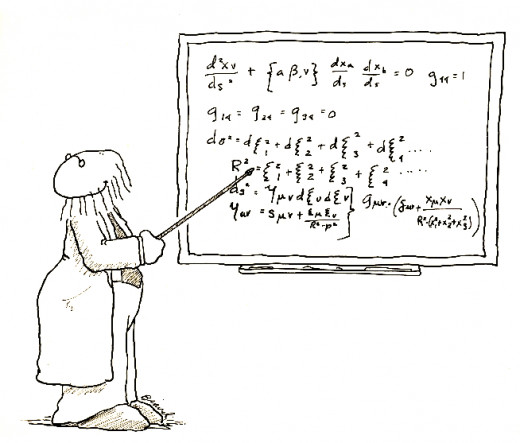 d²xν/ds² + {αβ,ν} dxa/ds dxb/ds = 0 g₄₄ = 1
g₁₄ = g₂₄ = g₃₄ = 0
dσ² = dξ₁² + dξ₂² + dξ₃² + dξ₄² ....
R² = ξ₁² + ξ₂² + ξ₃² + ξ₄² ....
ds² = γμν dξν dξν
γμν = Sμν + ξμ ξν/R²-p² } gμν = (δμν + xμxν/R²-(x₁²+x₂²+x₃²))